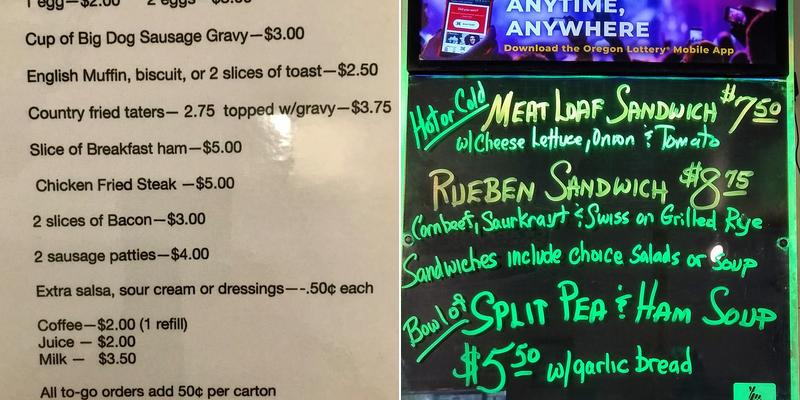 1 egg—$2.00 2 eggs
Cup of Big Dog Sausage Gravy—$3.00
English Muffin, biscuit, or 2 slices of toast—$2.50
Country fried taters— 2.75 topped w/gravy—$3.75
Slice of Breakfast ham—$5.00
Chicken Fried Steak —$5.00
2 slices of Bacon—$3.00
2 sausage patties—$4.00
Extra salsa, sour cream or dressings—-.50¢ each
Coffee—$2.00 (1 refill)
Juice — $2.00
Milk — $3.50
All to-go orders add 50¢ per carton
ANYTIME,
ANYWHERE
Download the Oregon Lottery® Mobile App
Hot or Cold MEAT LOAF SANDWICH $7.50
w/Cheese Lettuce, Onion & Tomato
RUEBEN SANDWICH $8.75
Cornbeef, Saurkraut & Swiss on Grilled Rye
Sandwiches include choice Salads or Soup
Bowl of SPLIT PEA & HAM SOUP
$5.50 w/garlic bread